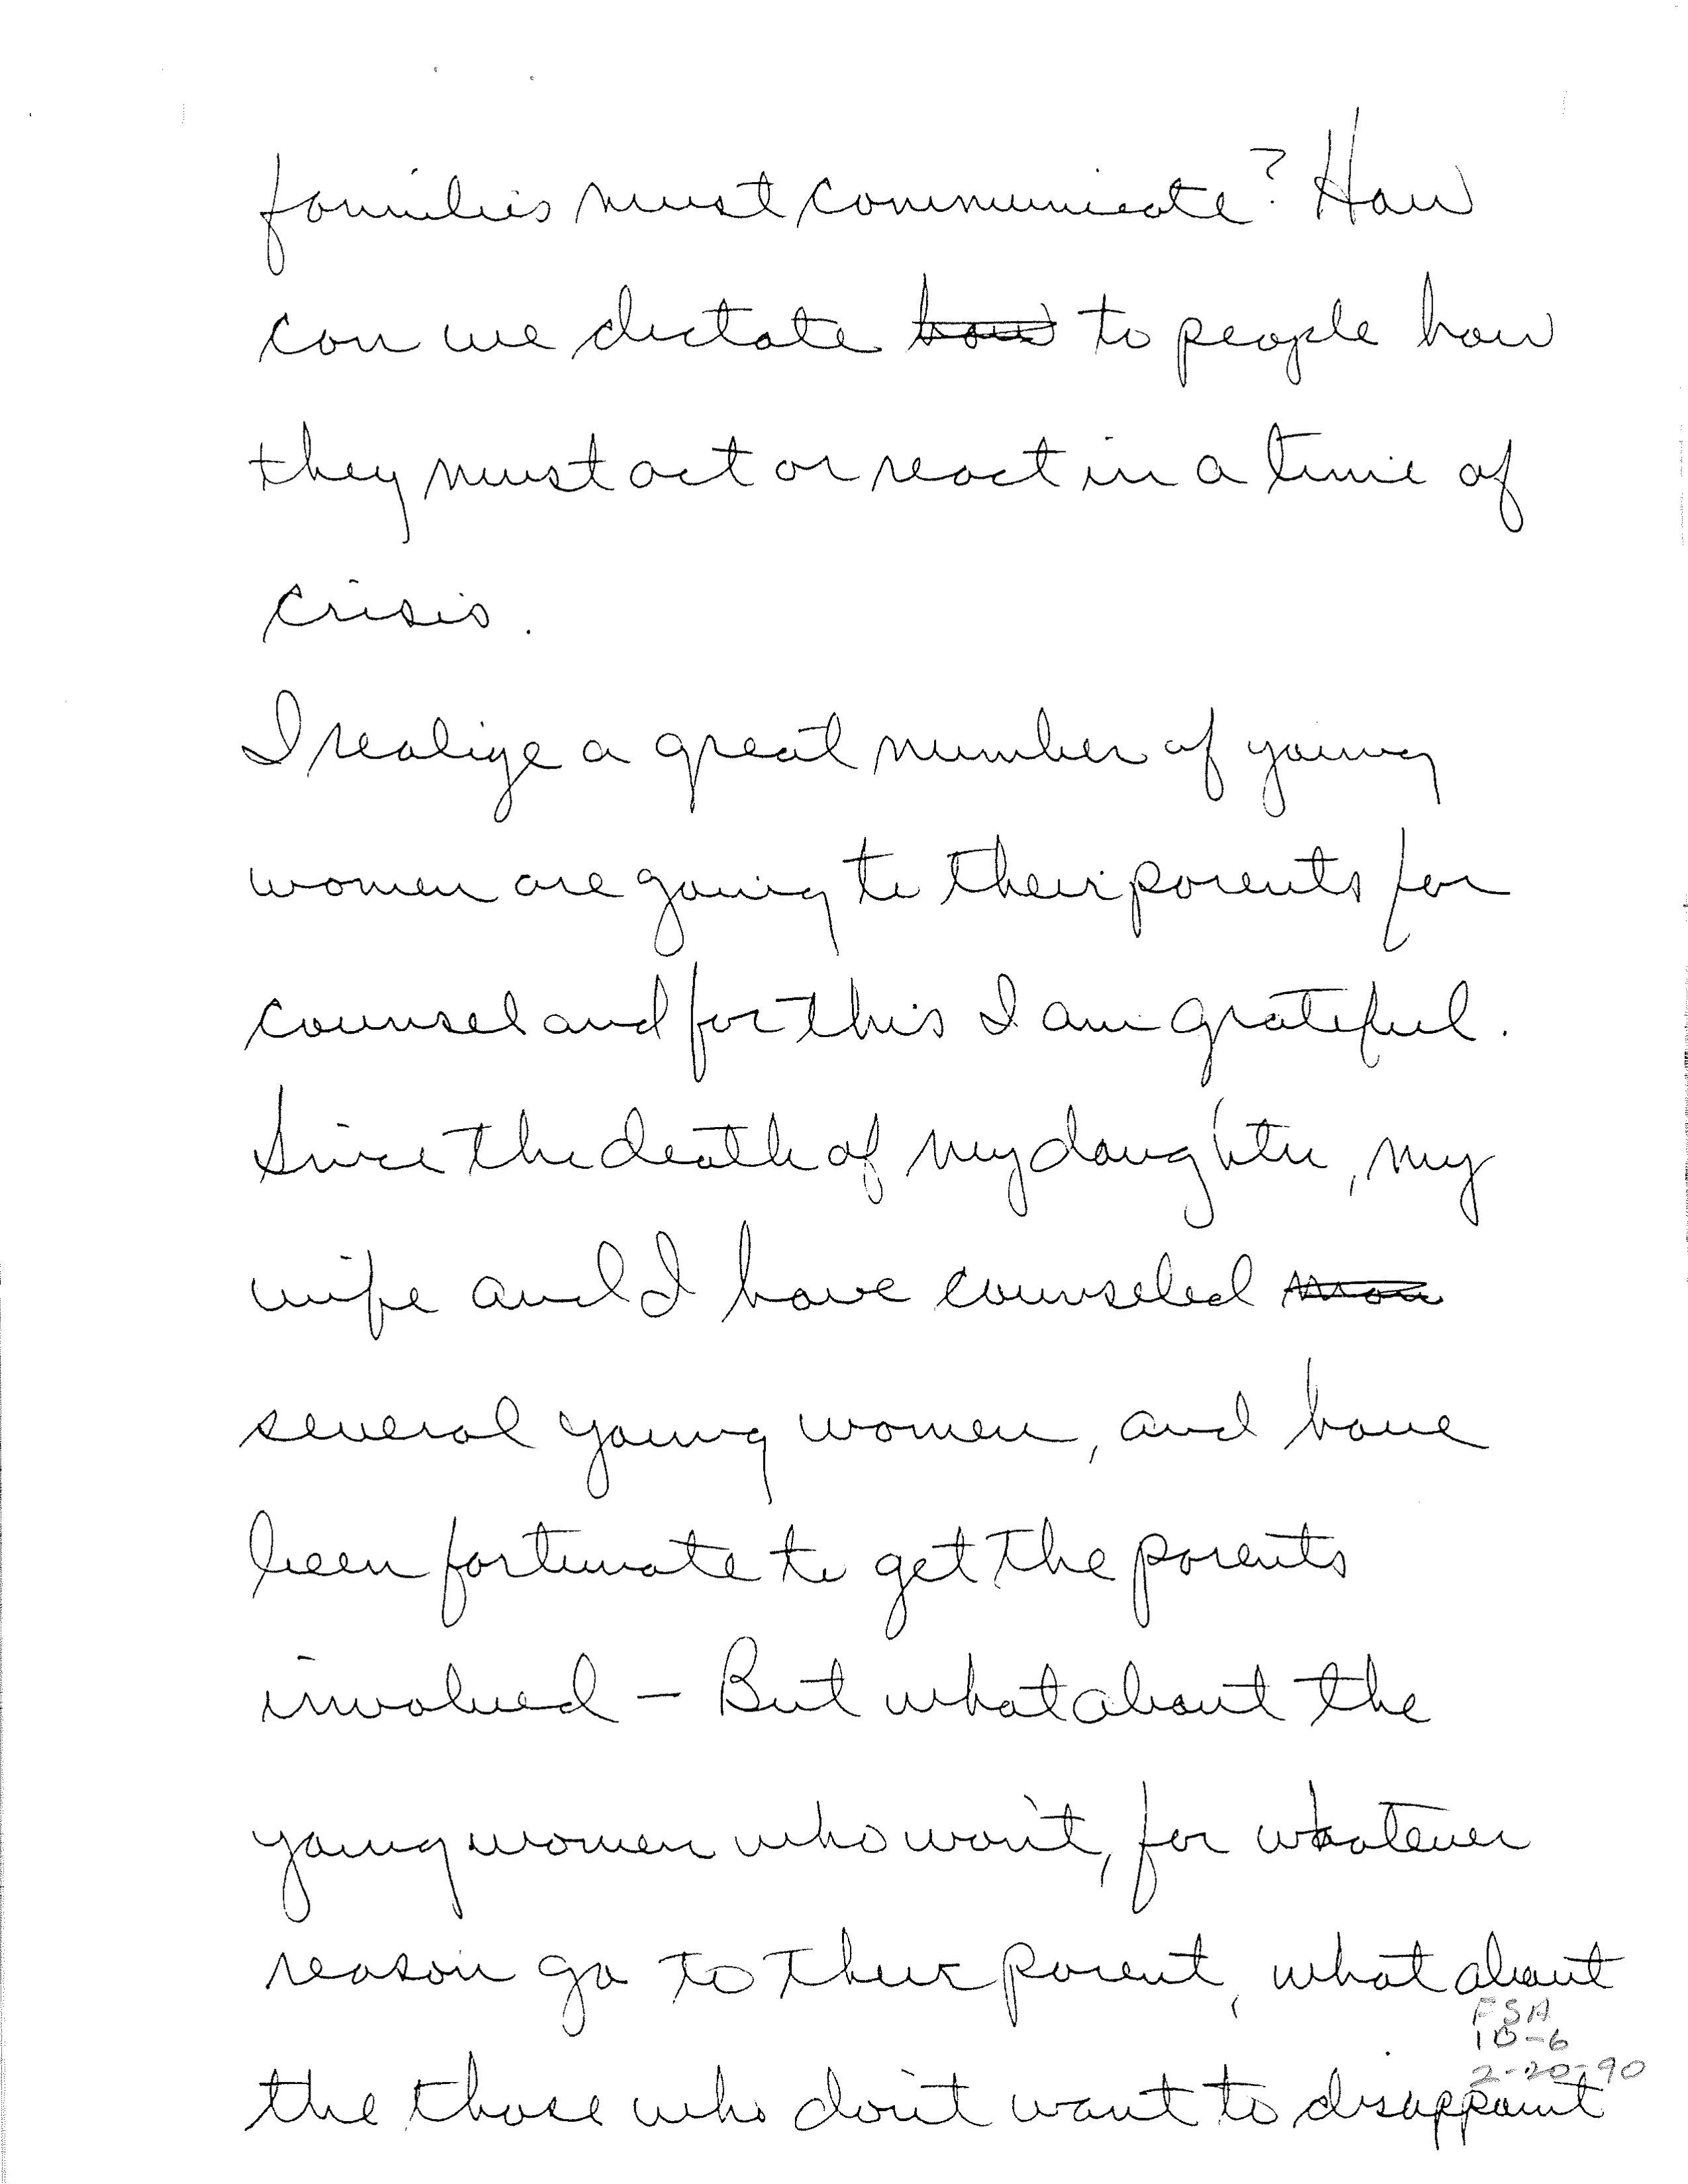 families must communicate? How
can we dictate how to people how
they must act or react in a time of
crisis.
I realize a great number of young
women are going to their parents for
counsel and for this I am grateful.
Since the death of my daughter, my
wife and I have counseled
several young women, and have
been fortunate to get the parents
involved - But what about the
young women who won't, for whatever
reason go to their parent, what about
FSA
10-6
2-20-90
the those who don't want to disappoint